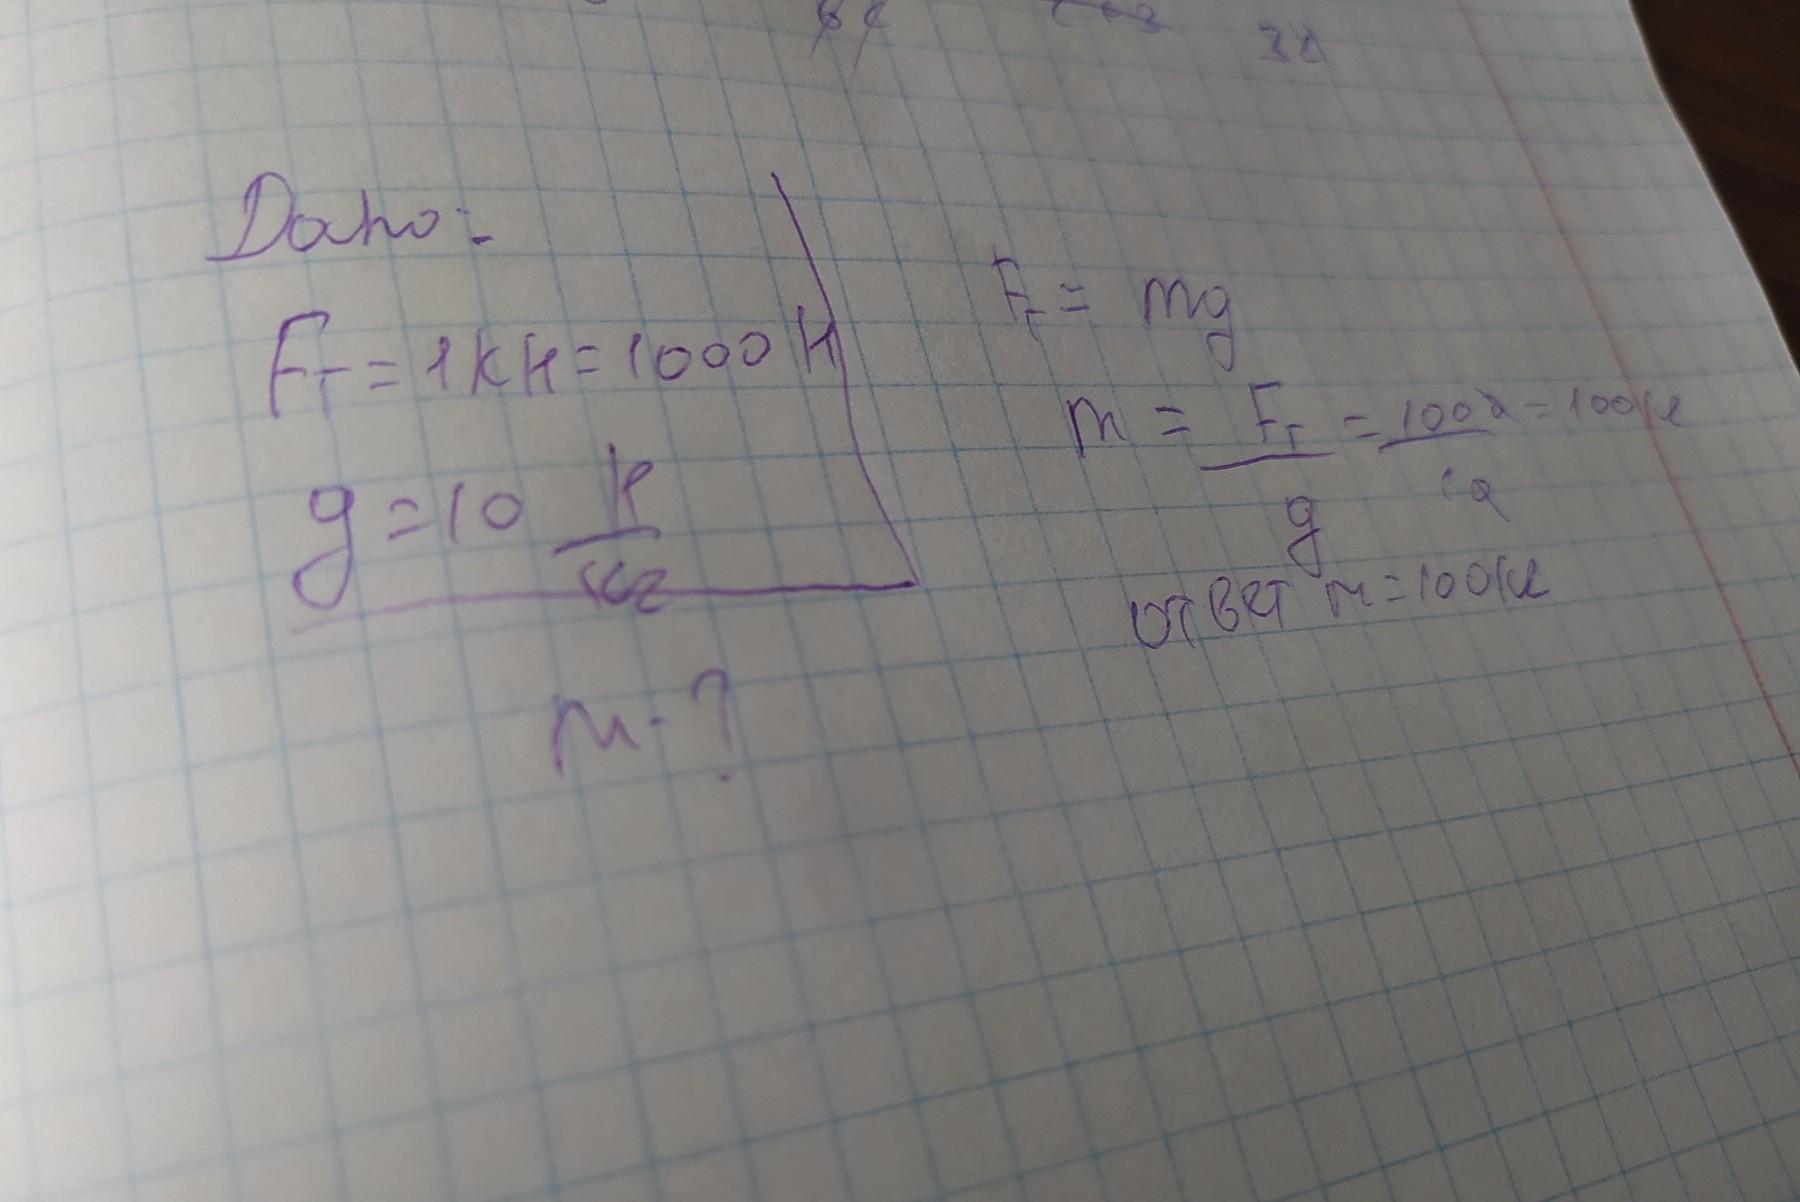 38
Дано:
Fт = 1 кН = 1000 Н
g = 10 Н/кг
m - ?
Fт = mg
m = Fт/g = 1000/10 = 100 кг
ответ m = 100 кг